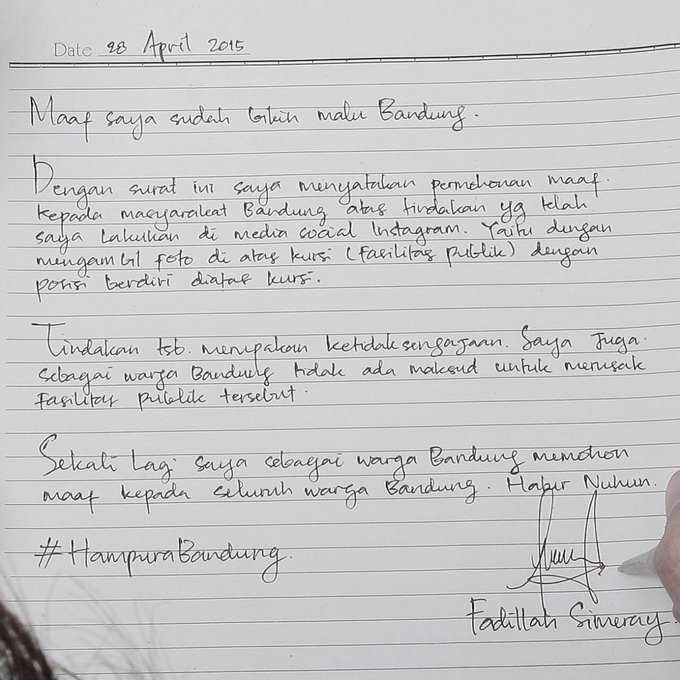 Date 28 April 2015
Maaf saya sudah bikin malu Bandung.
Dengan surat ini saya menyatakan permohonan maaf.
kepada masyarakat Bandung atas tindakan yg telah
saya lakukan di media social Instagram. Yaitu dengan
mengambil foto di atas kursi (fasilitas publik) dengan
posisi berdiri diatas kursi.
Tindakan tsb. merupakan ketidaksengajaan. Saya juga.
sebagai warga Bandung tidak ada maksud untuk merusak
fasilitas publik tersebut.
Sekali lagi saya sebagai warga Bandung memohon
maaf kepada seluruh warga Bandung. Hatur Nuhun.
#HampuraBandung.
Fadillah Simeray.